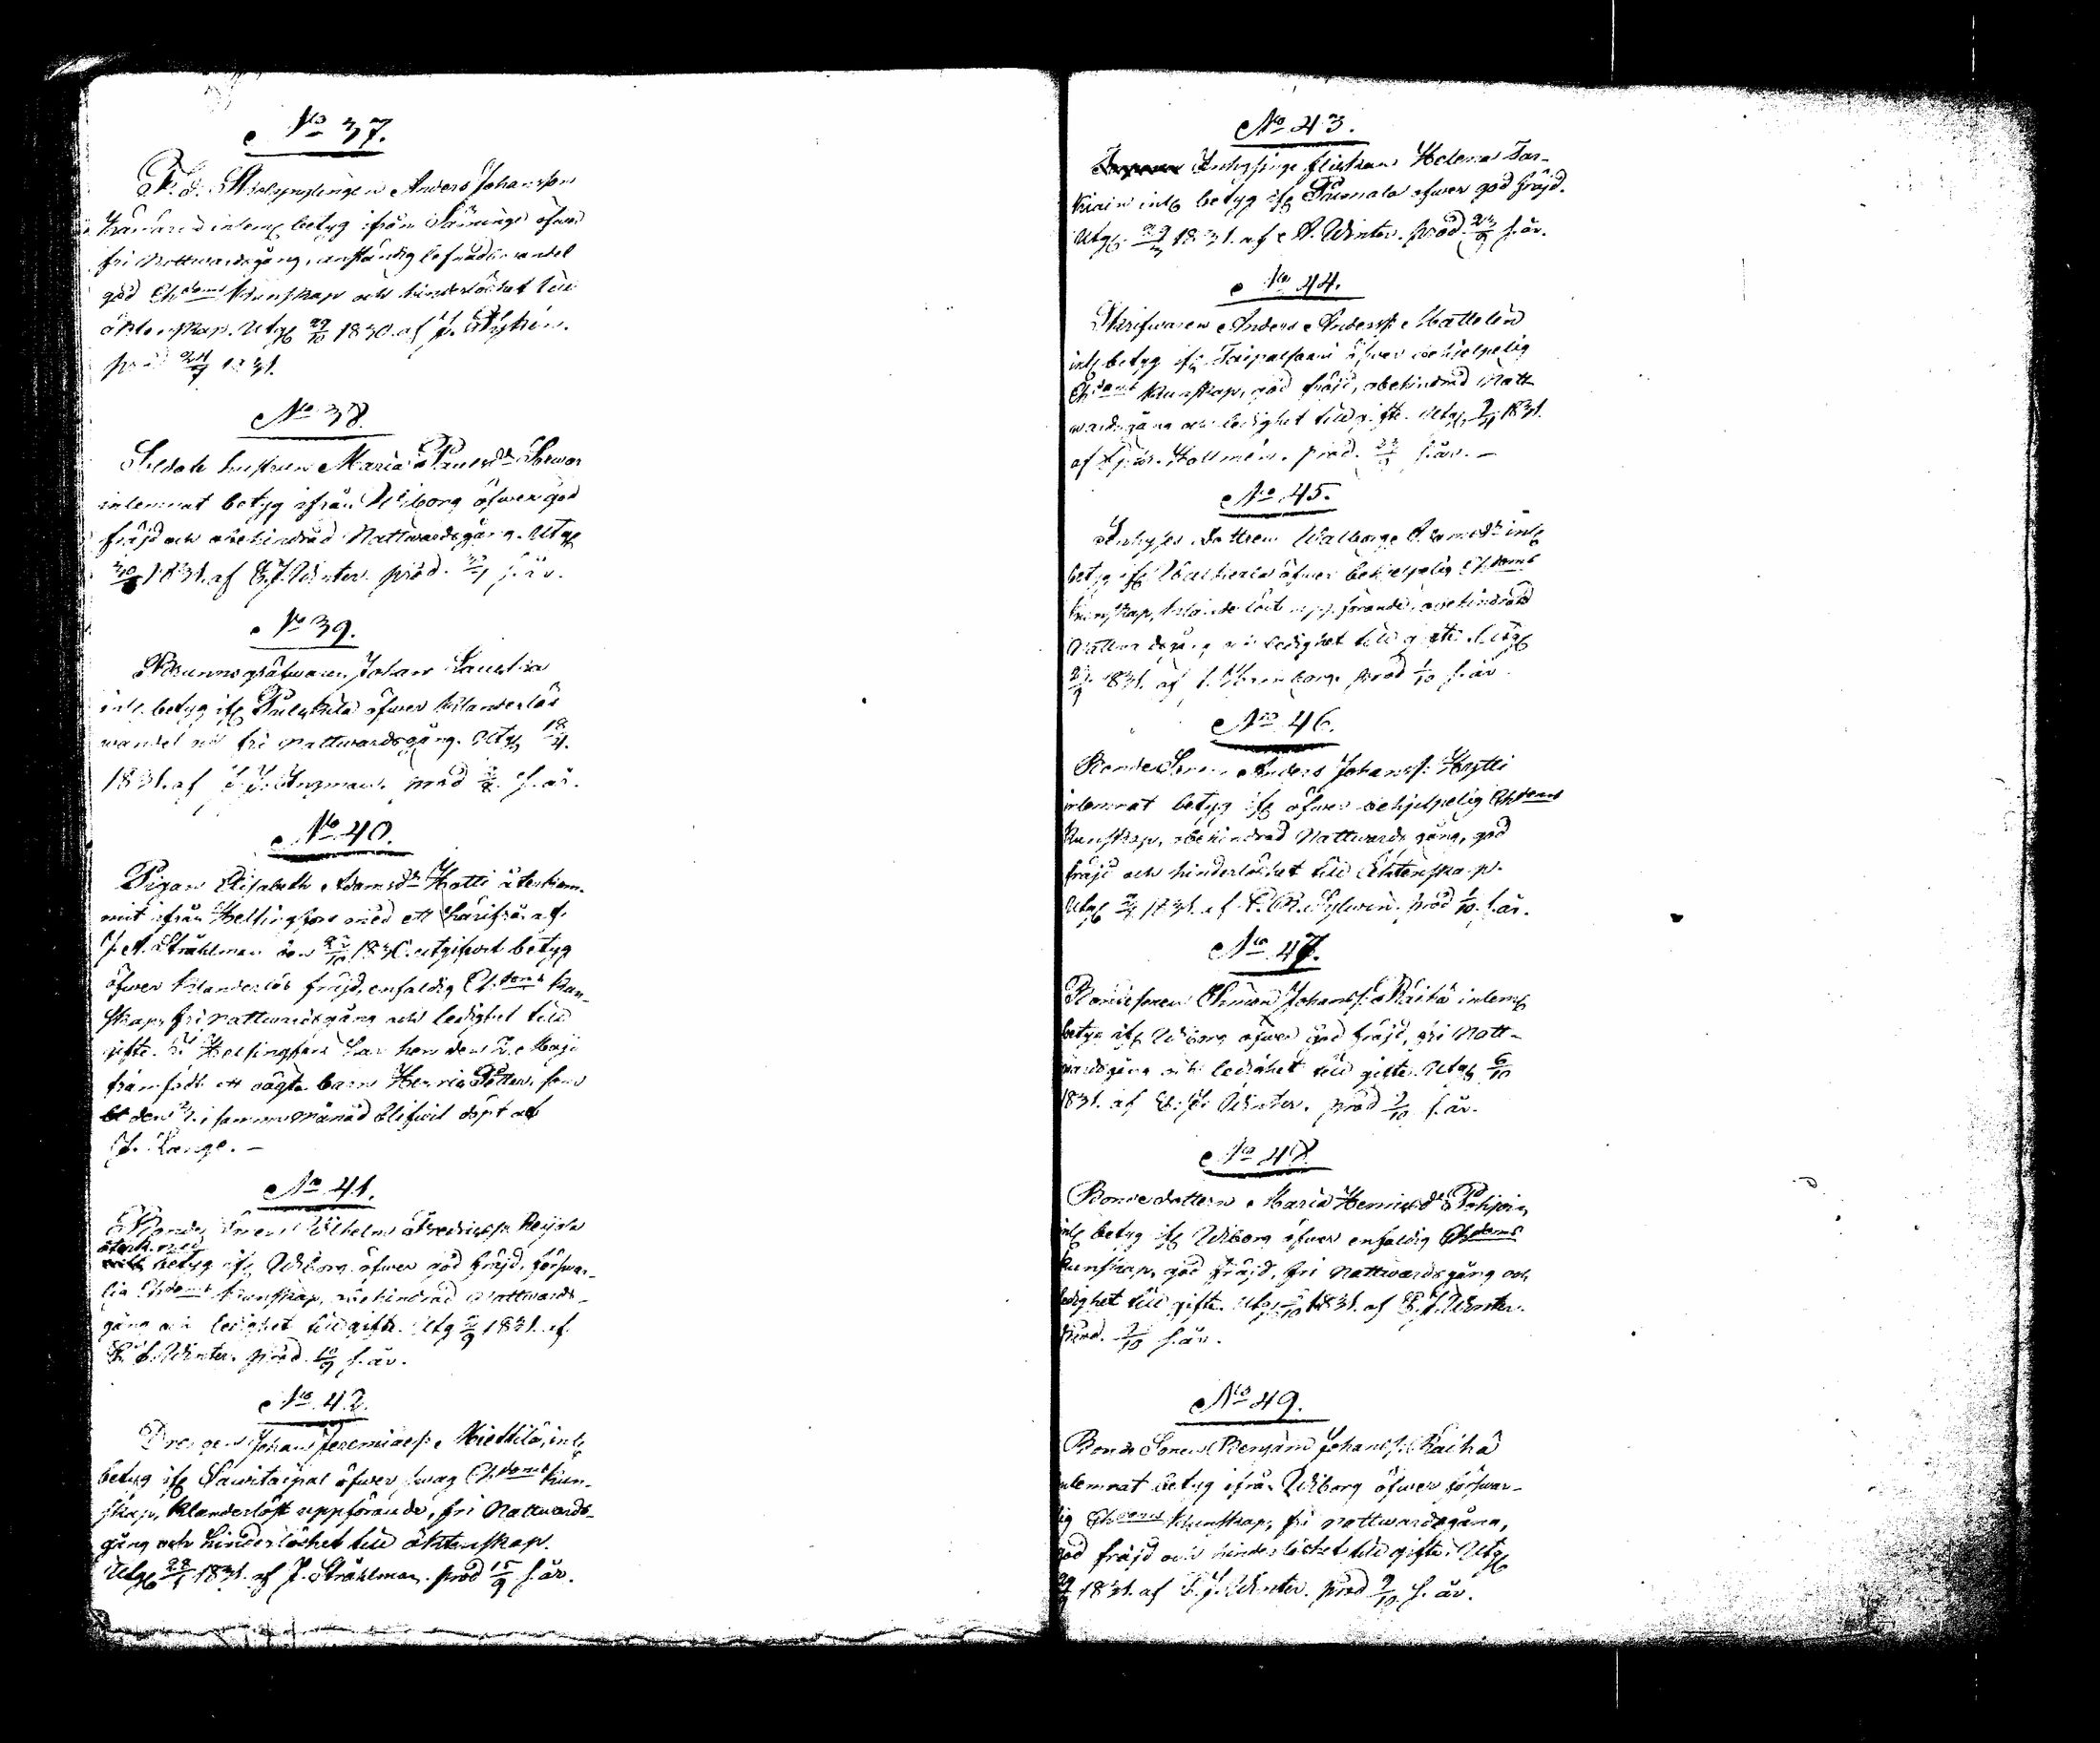 No 37.
F. d. Anders Johansson
inlemn betyg ifrån öfwer
fri Nattwardsgång, anständig lefnads wandel
god Ch:doms kunskap och hinderlöshet till
äktenskap. Utg 29/10 1830. af
prod 24/7 1831.
No 38.
Soldats hustrun Maria Paulsdr
inlemnat betyg ifrån Wiborg öfwer god
fräjd och obehindrad Nattwardsgång. Utg
30/ 1831. af E. J. Winter. prod. s. år.
No 39.
Brunnsgräfwaren Johan
inl. betyg ifr öfwer klanderlös
wandel och fri nattwardsgång. Utg 18/4.
1831. af J. J. prod s. år.
No 40.
Pigan Elisabeth Adamsdr Hatti återkom-
mit ifrån Helsingfors med ett härifrån af
J. A. Stråhlman den 1830 utgifwit betyg
öfwer klanderlös fräjd, enfaldig Ch:doms kun-
skap, fri nattwardsgång och ledighet till
gifte. I Helsingfors har hon den 2. Maji
framfödt ett oägta barn Henric Petter, som
den i samma månad blifwit döpt af
No 41.
Bonde Sonen Wilhelm Fredricss.
återk. med
betyg ifr Wiborg öfwer god fräjd, förswar-
lig Ch:doms kunskap, obehindrad nattwards-
gång och ledighet till gifte. Utg /9 1831. af
E. J. Winter. prod. 10/9 s. år.
No 42.
Drengen Johan Jeremiaess. Miettilä, inl
betyg ifr Sawitaipal öfwer swag Ch:doms kun-
skap, klanderlöst uppförande, fri Nattwards-
gång och hinderlöshet till äktenskap.
Utg 28/ 1831. af J. Stråhlman. prod 15/9 s. år.
No 43.
Inhyssinge flickan Helena Tar-
kiain inl betyg ifr öfwer god fräjd.
Utg. 29/3 1831. af A. Winter. prod. 23/9 s. år.
No 44.
Skrifwaren Anders Anderss.
inl betyg ifr Taipalsaari öfwer behjelpelig
Ch:doms kunskap, god fräjd, obehindrad Natt-
wardsgång och ledighet till gifte. Utg 1831.
af prod. s. år. —
No 45.
Inhyses dottren Walborg inl
betyg ifr Walkeala öfwer behjelpelig Ch:doms
kunskap, klanderlöst uppförande, obehindrad
nattwardsgång och ledighet till gifte. Utg
1831. af prod 1/10 s. år.
No 46.
Bonde Sonen Anders Johanss. Hyytti
inlemnat betyg ifr öfwer behjelpelig Ch:doms
kunskap, obehindrad Nattwards gång, god
fräjd och hinderlöshet till Ecktenskap.
Utg 1831. af prod 1/10 s. år.
No 47.
Bondesonen Simon Johanss. Räihä inlem
betyg ifr Wiborg öfwer god fräjd, fri Natt-
wardsgång och ledighet till gifte. Utg 6/10
1831. af E. J. Winter. prod 9/10 s. år.
No 48.
Bonde dottern Maria Henricsdr Pohjoin
inl betyg ifr Wiborg öfwer enfaldig Ch:doms
kunskap, god fräjd, fri nattwardsgång och
ledighet till gifte. Utg /10 1831. af E. J. Winter.
prod. 9/10 s. år.
No 49.
Bonde Sonen Benjam Johanss. Räihä
inlemnat betyg ifrån Wiborg öfwer förswar-
lig Ch:doms kunskap, fri nattwardsgång,
god fräjd och hinderlöshet till gifte. Utg
29/9 1831. af E. J. Winter. prod 9/10 s. år.